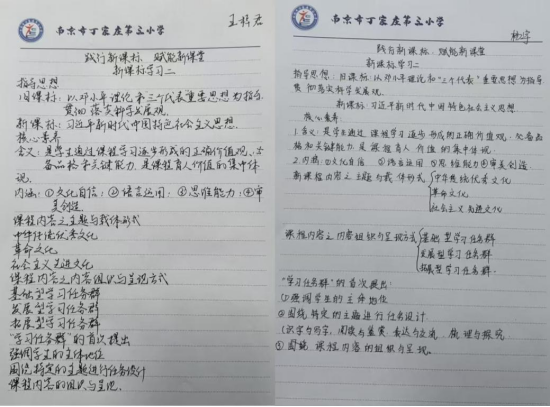 南京市丁家庄第二小学
践行新课标，赋能新课堂
新课标学习二
指导思想
旧课标：以邓小平理论和"三个代表"重要思想为指导，
贯彻落实科学发展观。
新课标：习近平新时代中国特色社会主义思想。
核心素养
含义：是学生通过课程学习逐步形成的正确价值观、必
备品格和关键能力，是课程育人价值的集中体
现。
内涵：①文化自信；②语言运用；③思维能力；④审
美创造
课程内容之主题与载体形式
中华传统优秀文化
革命文化
社会主义先进文化
课程内容之内容组织与呈现方式
基础型学习任务群
发展型学习任务群
拓展型学习任务群
"学习任务群"的首次提出
强调学生的主体地位
围绕特定的主题进行任务设计
课程内容的组织与呈现。
南京市丁家庄第二小学
践行新课标，赋能新课堂
新课标学习二
指导思想 旧课标：以邓小平理论和"三个代表"重要思想为指导，
贯彻落实科学发展观。
新课标：习近平新时代中国特色社会主义思想
核心素养
1.含义：是学生通过课程学习逐步形成的正确价值观、必备品
格和关键能力，是课程育人价值的集中体现
2.内涵：①文化自信 ②语言运用 ③思维能力 ④审美创造
新课程内容之主题与载体形式 中华传统优秀文化
革命文化
社会主义先进文化
课程内容之内容组织与呈现方式 基础型学习任务群
发展型学习任务群
拓展型学习任务群
"学习任务群"的首次提出：
①强调学生的主体地位
②围绕特定的主题进行任务设计
识字与写字，阅读与鉴赏，表达与交流，梳理与探究
课程内容的组织与呈现。